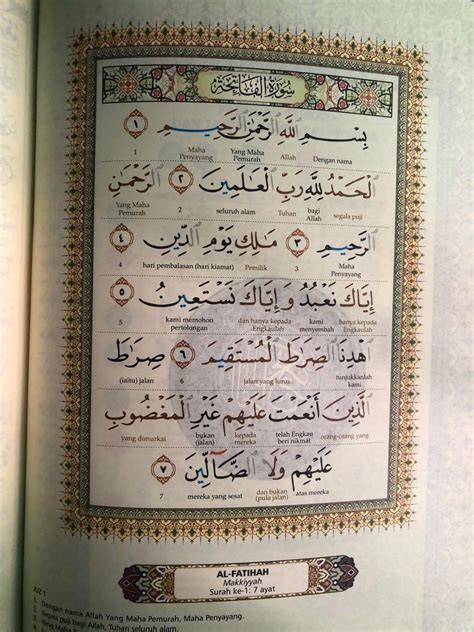 سُورَةُ الْفَاتِحَةِ
بِسْمِ اللَّهِ الرَّحْمَٰنِ الرَّحِيمِ ١
Dengan nama Allah Yang Maha Pemurah Maha Penyayang 1
الْحَمْدُ لِلَّهِ رَبِّ الْعَالَمِينَ ٢ الرَّحْمَٰنِ
segala puji bagi Allah Tuhan seluruh alam 2 Yang Maha Pemurah
الرَّحِيمِ ٣ مَالِكِ يَوْمِ الدِّينِ ٤
Maha Penyayang 3 Pemilik hari pembalasan (hari kiamat) 4
إِيَّاكَ نَعْبُدُ وَإِيَّاكَ نَسْتَعِينُ ٥
hanya kepada Engkaulah kami menyembah dan hanya kepada Engkaulah kami memohon pertolongan 5
اهْدِنَا الصِّرَاطَ الْمُسْتَقِيمَ ٦ صِرَاطَ
tunjukkanlah kami jalan yang lurus 6 (iaitu) jalan
الَّذِينَ أَنْعَمْتَ عَلَيْهِمْ غَيْرِ الْمَغْضُوبِ
orang-orang yang telah Engkau beri nikmat kepada mereka bukan (jalan) yang dimurkai
عَلَيْهِمْ وَلَا الضَّالِّينَ ٧
atas mereka dan bukan (pula jalan) mereka yang sesat 7
AL-FATIHAH
Makkiyyah
Surah ke-1: 7 ayat
JUZ 1
1. Dengan nama Allah Yang Maha Pemurah, Maha Penyayang.
2. Segala puji bagi Allah, Tuhan seluruh alam.
3. Yang Maha